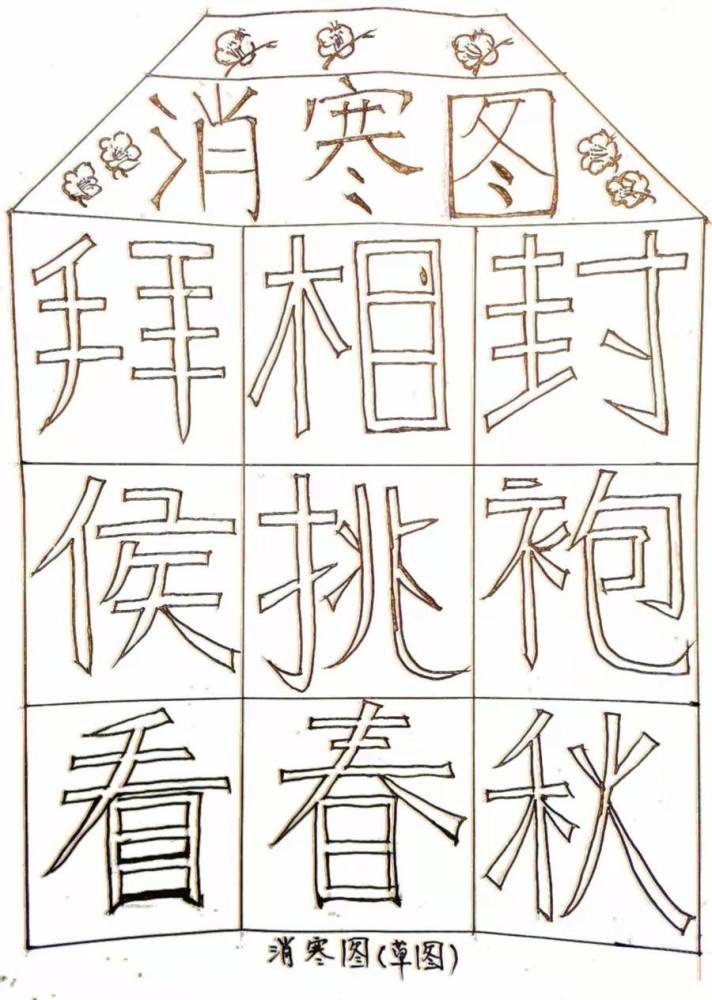 消寒图
拜相封
侯挑袍
看春秋
消寒图(草图)